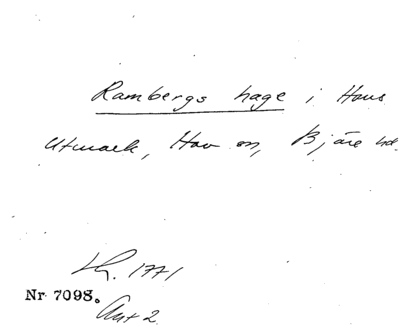 Rambergs hage i Hovs
Utmark, Hov sn, Bjäre hd.
Lh. 1771
Nr 7098.
Akt 2